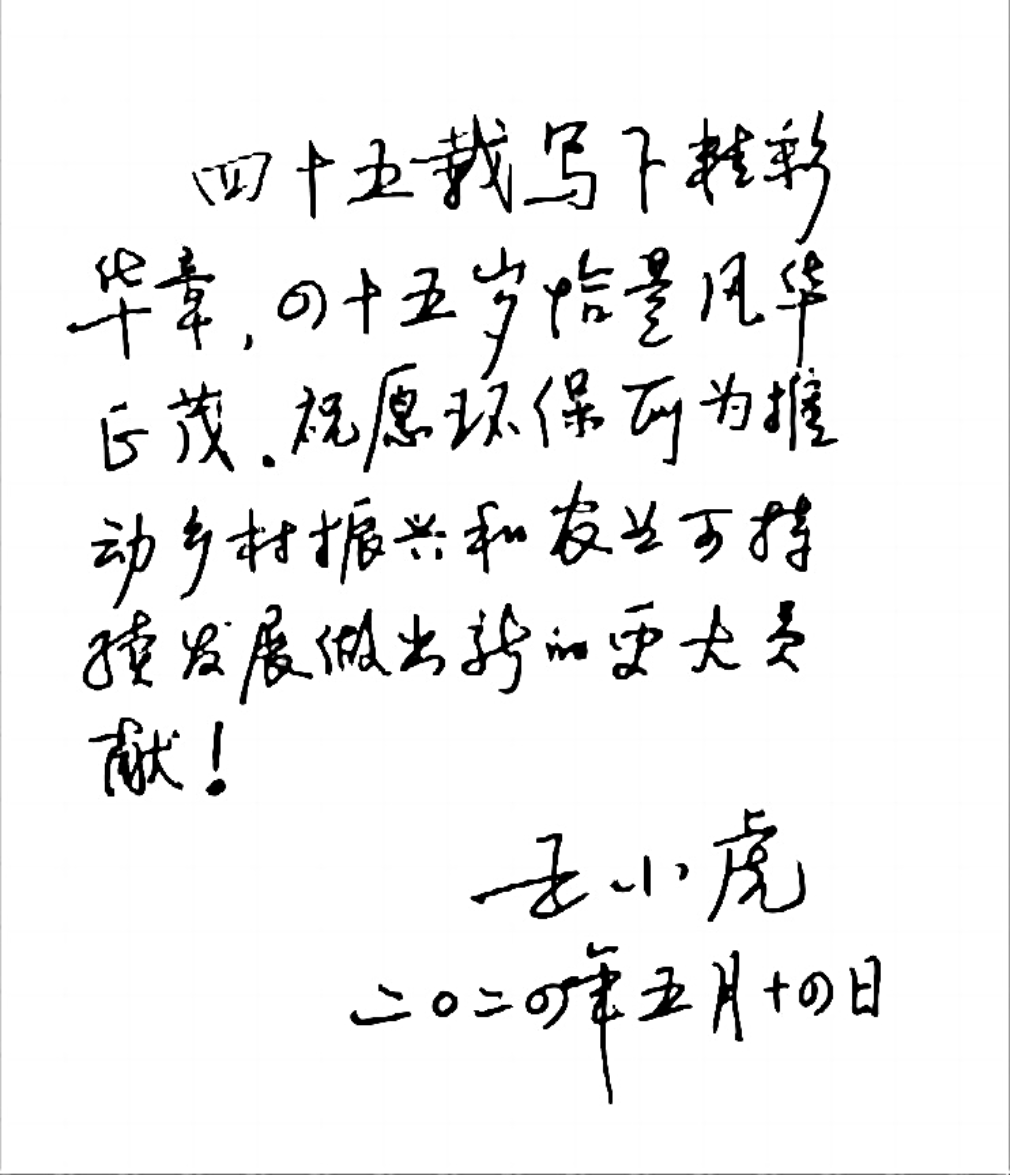 四十五载写下精彩
华章,四十五岁恰是风华
正茂.祝愿环保所为推
动乡村振兴和农业可持
续发展做出新的更大贡
献!
王小虎
二〇二四年五月十四日